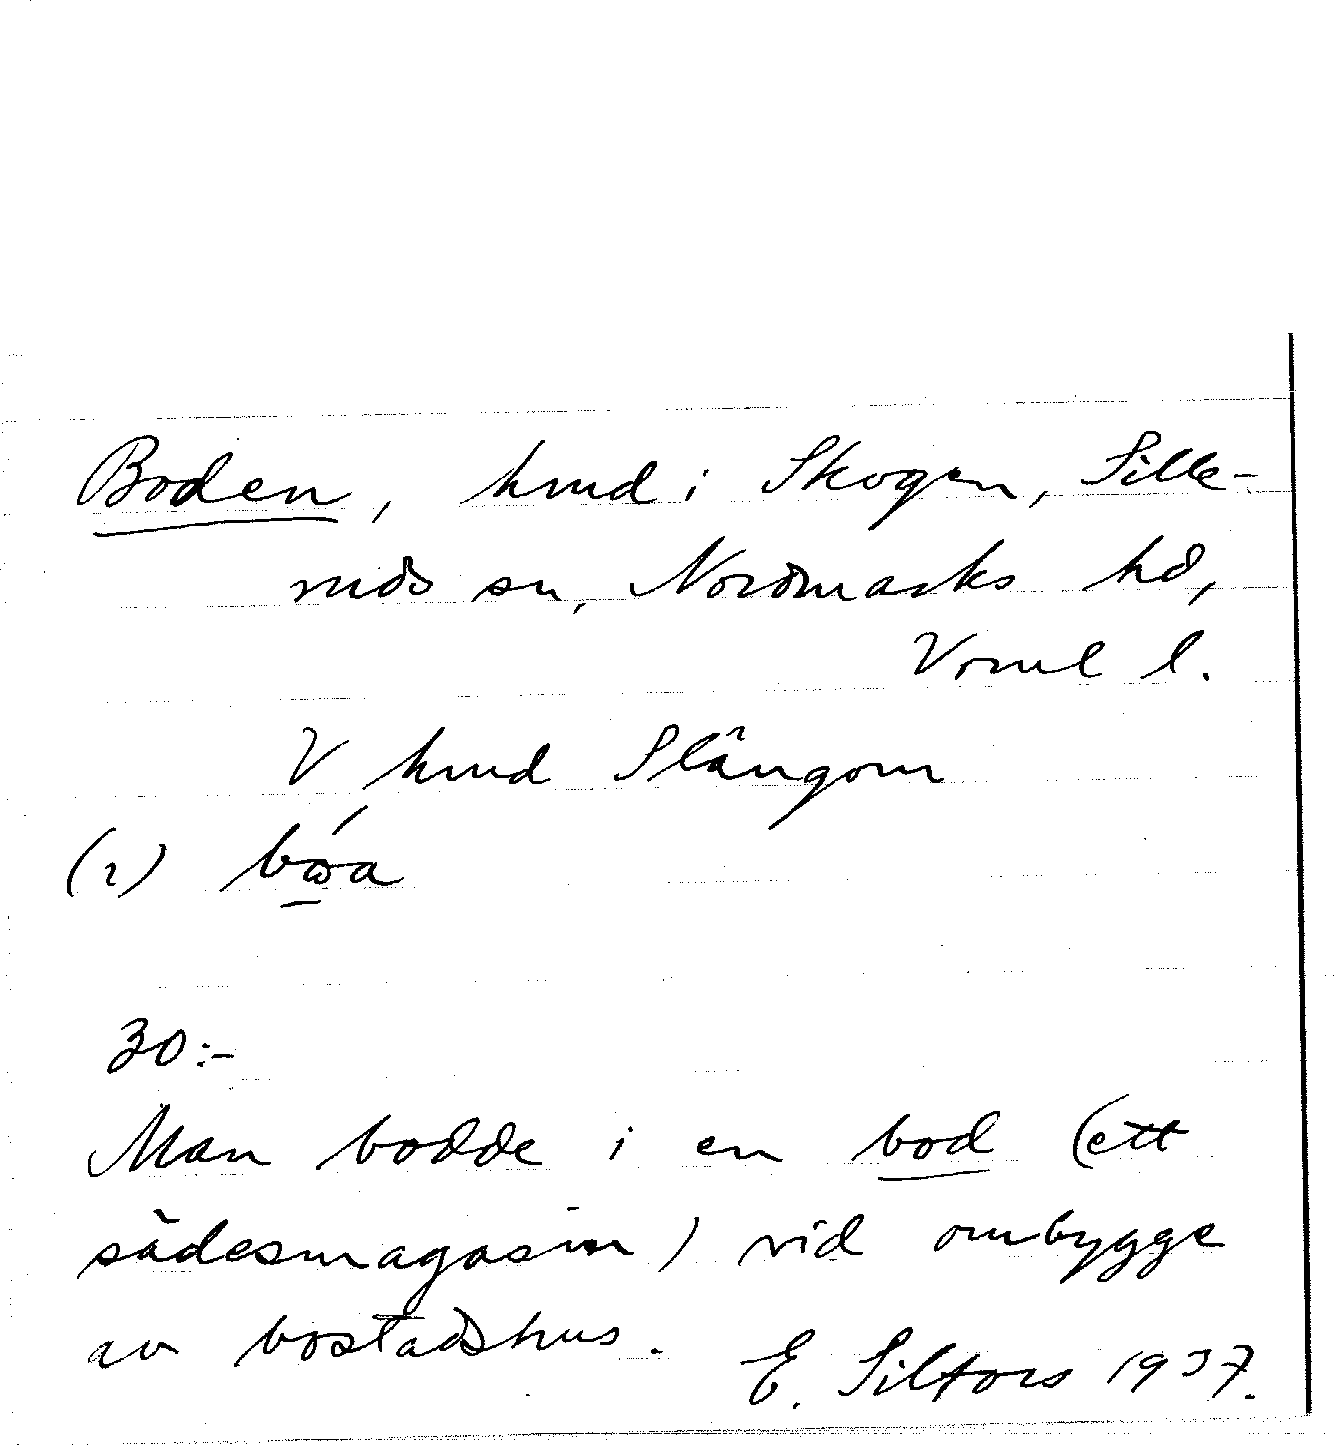 Boden, hmd i Skogen, Sille-
ruds sn, Nordmarks hd,
Vrml l.
V hmd Slängom
(2) bωa
30:-
Man bodde i en bod (ett
sädesmagasin) vid ombygge
av bostadshus. E. Siltors 1937.